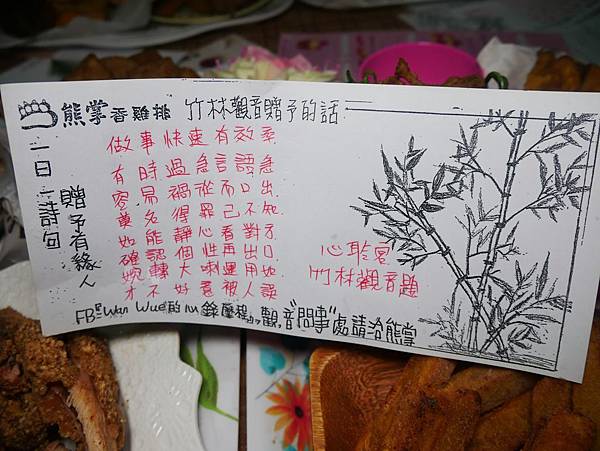 熊掌香雞排 竹林觀音贈予的話
一日一詩句
贈予有緣人
做事快速有效率
有時過急言語急
容易禍從而口出
莫名得罪己不知
如能靜心看對方
確認個性再出口
婉轉大喇運用如
才不好意被人誤
心聆宮
竹林觀音題
FB Wan Wue的心錄歷程。觀音"問事"處請洽熊掌